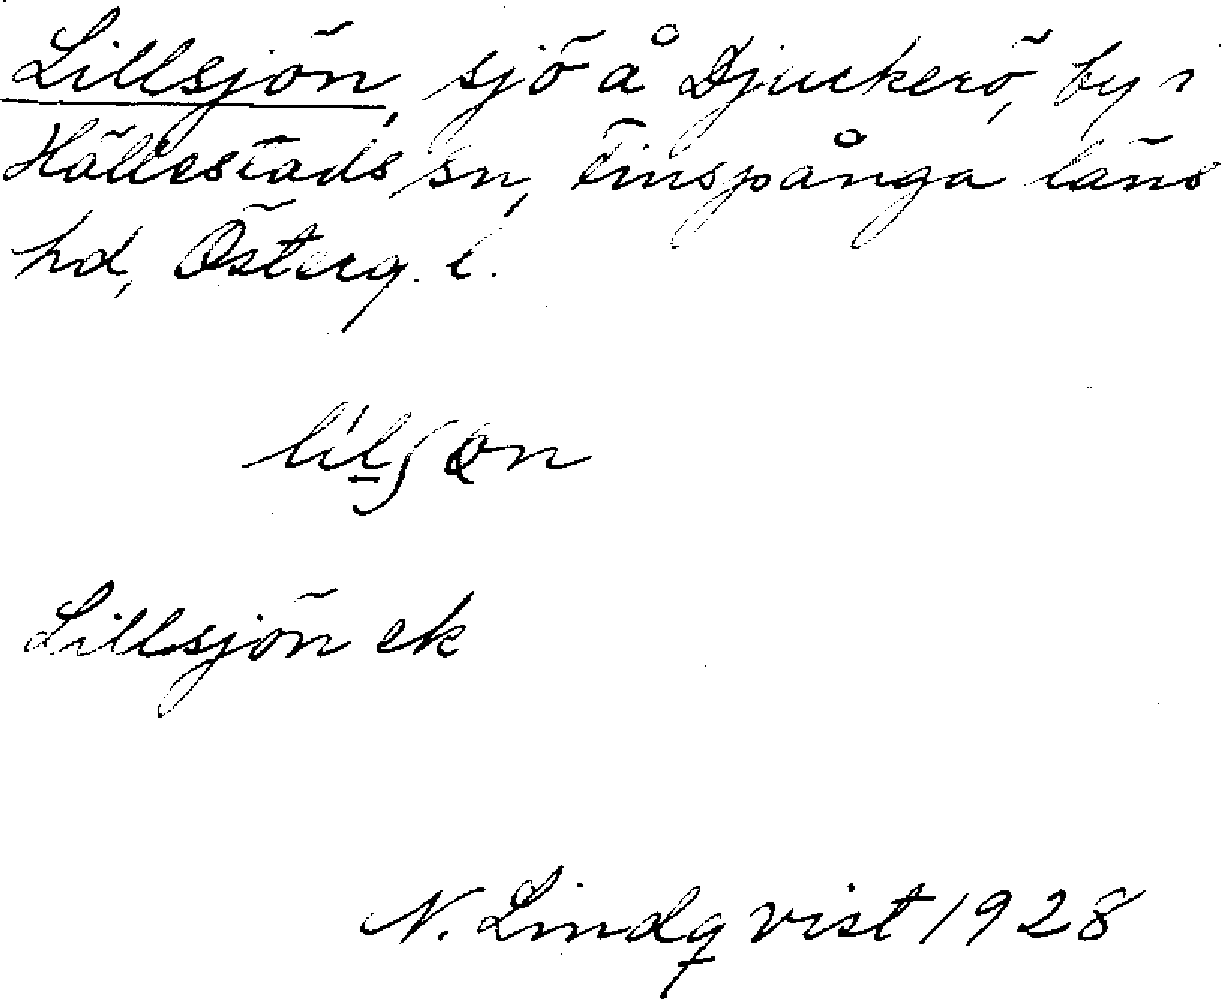 Lillsjön, sjö å Djuckerö, by i
Hällestads sn, Finspånga läns
hd, Österg. l.
Lillsjön ek
N. Lindqvist 1928